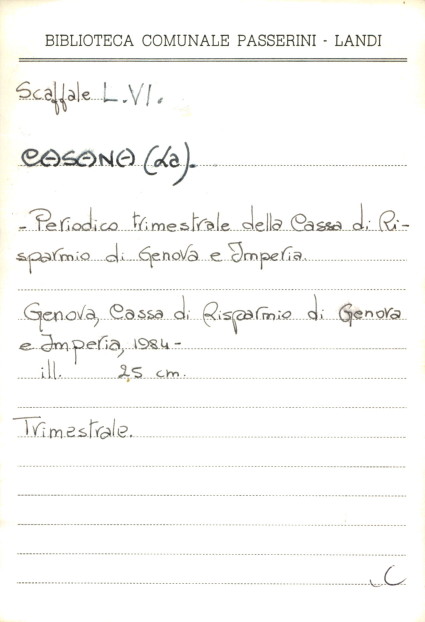 BIBLIOTECA COMUNALE PASSERINI - LANDI
Scaffale L.VI.
CASANA (La).
- Periodico trimestrale della Cassa di Ri-
sparmio di Genova e Imperia.
Genova, Cassa di Risparmio di Genova
e Imperia, 1984 -
ill. 25 cm.
Trimestrale.